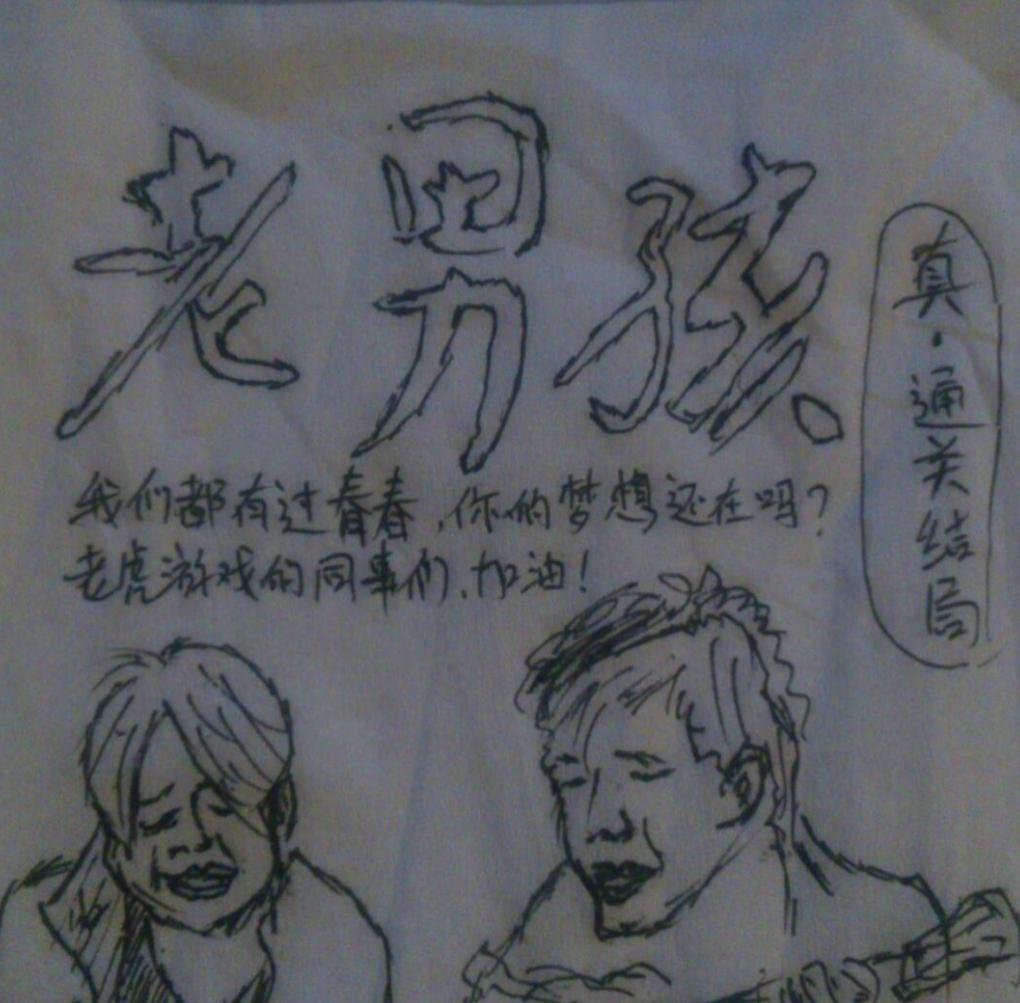 老男孩
我们都有过春春,你的梦想还在吗?
老虎游戏的同事们,加油!
真·通关结局